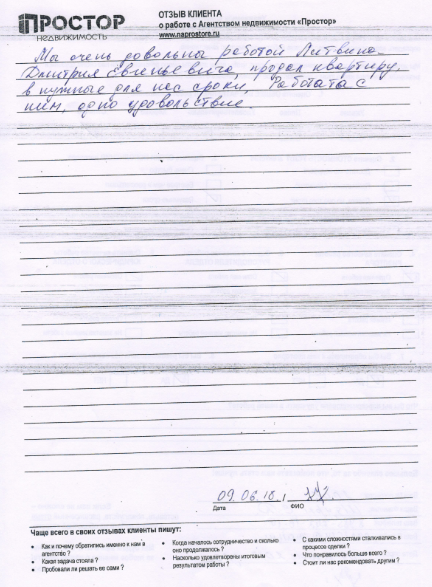 ПРОСТОР
НЕДВИЖИМОСТЬ
ОТЗЫВ КЛИЕНТА
о работе с Агентством недвижимости «Простор»
www.naprostore.ru
Мы очень довольны работой Литвина
Дмитрия Евгеньевича, продал квартиру,
в нужные для нас сроки, Работата с
ним, одно удовольствие.
09.06.18,
Дата
ФИО
Чаще всего в своих отзывах клиенты пишут:
• Как и почему обратились именно к нам в агентство ?
• Какая задача стояла ?
• Пробовали ли решать ее сами ?
• Когда началось сотрудничество и сколько оно продолжалось ?
• Насколько удовлетворены итоговым результатом работы ?
• С какими сложностями сталкивались в процессе сделки ?
• Что понравилось больше всего ?
• Стоит ли нас рекомендовать другим ?